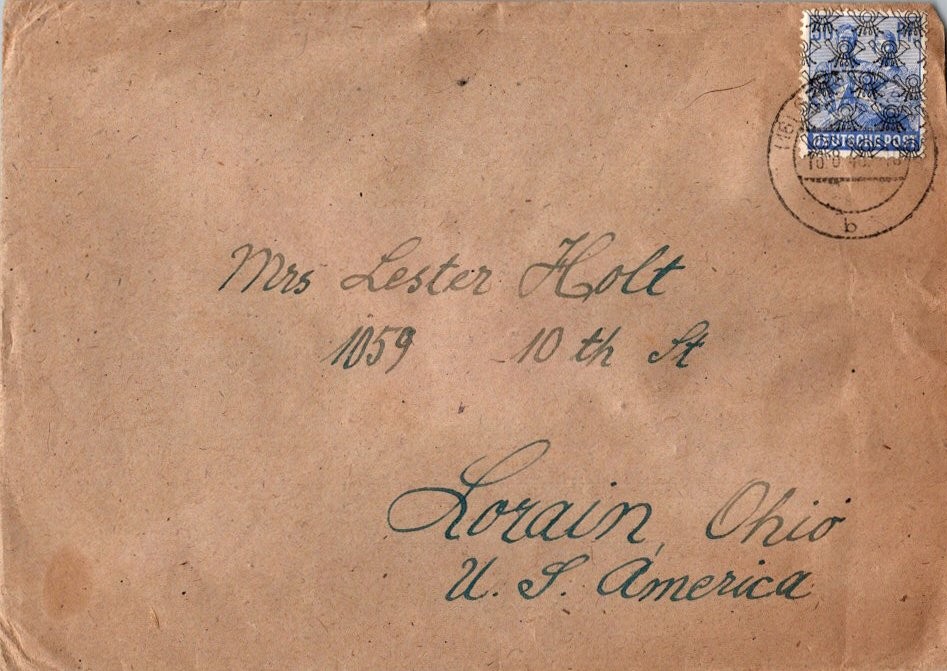 DEUTSCHE POST
b
Mrs Lester Holt
1059 10th St
Lorain, Ohio
U. S. America